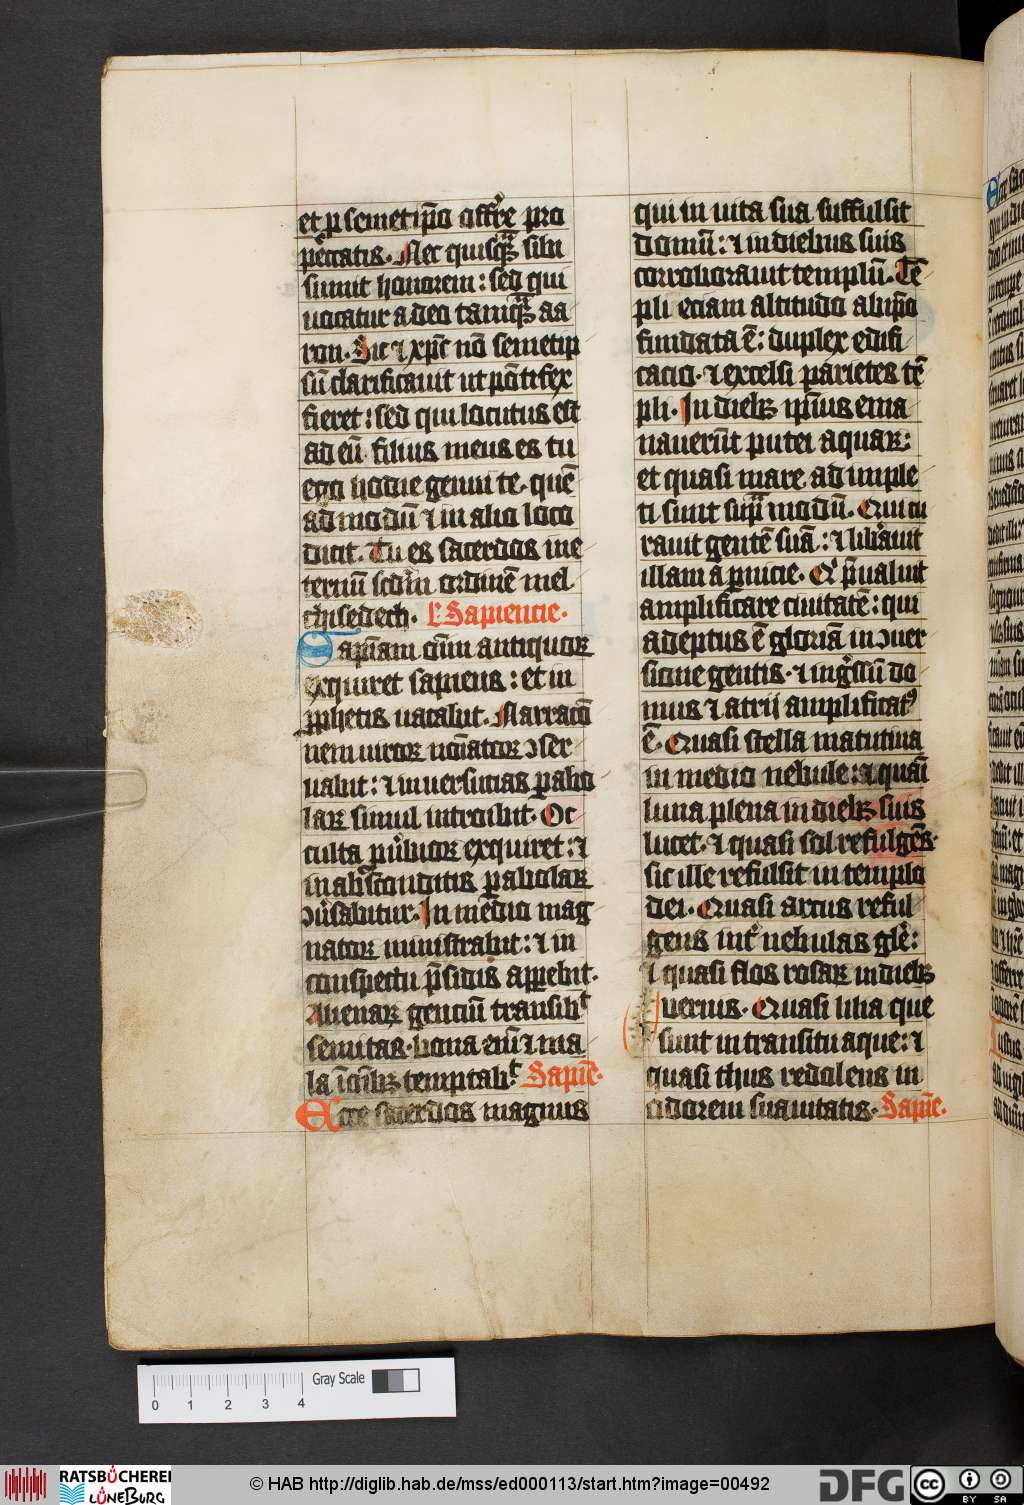 et p semetip̄o offr̄e pro
pc̄catis. Nec quisq̄ꝫ sibi
sumit honorem: sed qui
uocatur a deo tamq̄ꝫ aa
ron. Sic ⁊ xp̄c nō semetip
sū clarificauit ut pōtifex
fieret: sed qui locutus est
ad eū. filius meus es tu
ego hodie genui te. quē
ad modū ⁊ in alio loco
dicit. Tu es sacerdos ine
ternū scd̄m ordinē mel
chisedech. L' Sapiencie.
Sapīam oīm antiquoꝝ
exquiret sapiens: et in
ꝓphetis uacabit. Narracō
nem uiroꝝ noīatoꝝ ɔser
uabit: ⁊ in uersucias pabo
laꝝ simul introibit. Oc
culta ꝓūbioꝝ exquiret: ⁊
in abscōnditis pabolaꝝ
ɔūsabitur. In medio mag
natoꝝ ministrabit: ⁊ in
conspectu p̄sidis apparebit.
Alienaꝝ genciū transibit
semitas. bona eni ⁊ ma
la ī oībꝫ temptabit. Sapīe.
Ecce sacerdos magnus
qui in uita sua suffulsit
domū: ⁊ in diebus suis
corroborauit templū. Tē
pli eciam altitudo ab ip̄o
fundata ē: duplex edifi
cacio. ⁊ excelsi parietes tē
pli. In diebꝫ ip̄ius ema
nauerūt putei aquaꝝ:
et quasi mare ad imple
ti sunt sup̄ modū. Qui cu
rauit gentē suā: ⁊ lib̄auit
illam a p̄nicie. Qi p̄ualuit
amplificare ciuitatē: qui
adeptus ē gloriā in ɔuer
sione gentis. ⁊ ingr̄ssū do
mus ⁊ atrii amplificat9
ē. Quasi stella matutina
in medio nebule: ⁊ quasi
luna plena in diebꝫ suis
lucet. ⁊ quasi sol refulgēs.
sic ille refulsit in templo
dei. Quasi arcus reful
gens int̄ nebulas gl̄e:
⁊ quasi flos rosaꝝ in diebꝫ
uernis. Quasi lilia que
sunt in transitu aque: ⁊
quasi thus redolens in
odorem suauitatis. Sapīe.
0 1 2 3 4 Gray Scale
RATSBÜCHEREI
LÜNEBURG
© HAB http://diglib.hab.de/mss/ed000113/start.htm?image=00492
DFG
cc BY SA